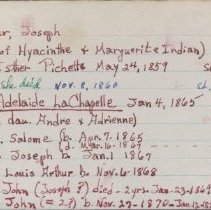 ur, Joseph
of Hyacinthe & Marguerite Indian)
Esther Pichette May 24, 1859
She died Nov. 8, 1860
Adelaide LaChapelle Jan 4, 1865
dau. Andre & Adrienne)
Salome (b. Apr. 7-1865
(d. Mar. 16-1867
Joseph b. Jan. 1 1867
Louis Arthur b. Nov. 6-1868
John (Joseph?) died-2 yrs-Jan-23-1869
John (=2?) b. Nov. 27-1870-Jan-12-18